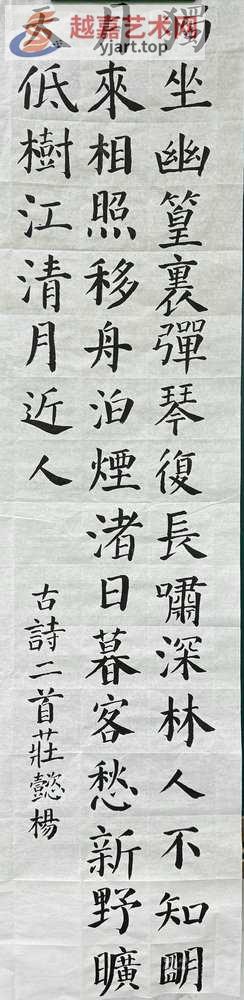 越嘉艺术网
yjart.top
獨坐幽篁裏彈琴復長嘯深林人不知明
月來相照移舟泊煙渚日暮客愁新野曠
天低樹江清月近人
古詩二首莊懿楊